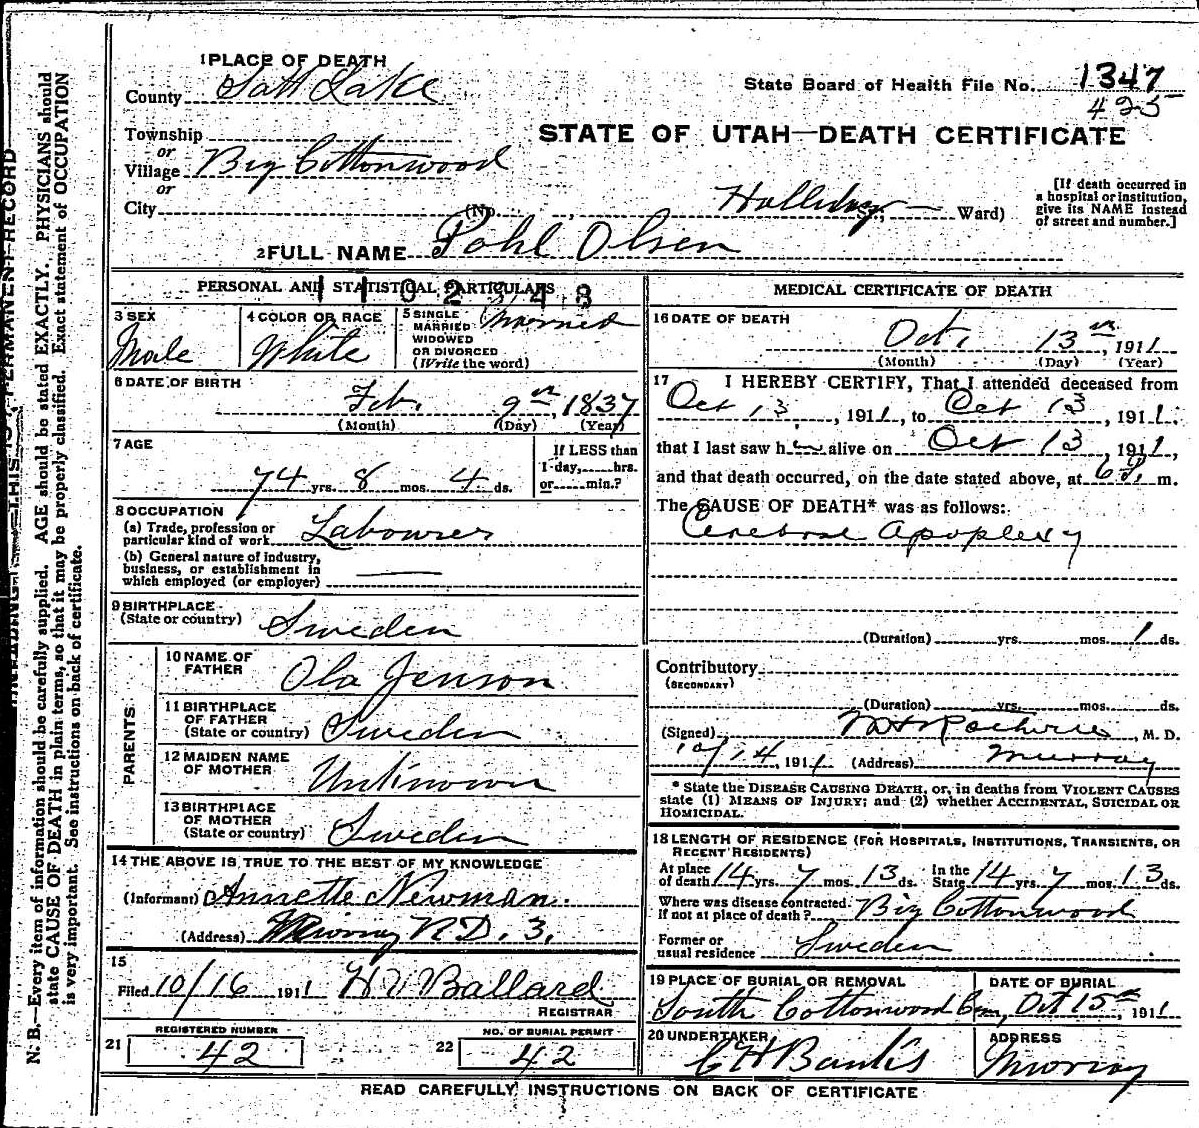 1 PLACE OF DEATH
County Salt Lake
State Board of Health File No. 1347
425
Township
or
Village Big Cottonwood
or
City (No. , Holliday St.; Ward)
STATE OF UTAH—DEATH CERTIFICATE
[If death occurred in
a hospital or institution,
give its NAME instead
of street and number.]
2 FULL NAME Pohl Olsen
PERSONAL AND STATISTICAL PARTICULARS
3 SEX
Male
4 COLOR OR RACE
White
5 SINGLE
MARRIED
WIDOWED
OR DIVORCED
(Write the word)
Married
6 DATE OF BIRTH
Feb. 9th, 1837
(Month) (Day) (Year)
7 AGE
74 yrs. 8 mos. 4 ds.
If LESS than
1 day, hrs.
or min.?
8 OCCUPATION
(a) Trade, profession or
particular kind of work Labourer
(b) General nature of industry,
business, or establishment in
which employed (or employer)
9 BIRTHPLACE
(State or country) Sweden
PARENTS
10 NAME OF
FATHER Ola Jenson
11 BIRTHPLACE
OF FATHER
(State or country) Sweden
12 MAIDEN NAME
OF MOTHER Unknown
13 BIRTHPLACE
OF MOTHER
(State or country) Sweden
14 THE ABOVE IS TRUE TO THE BEST OF MY KNOWLEDGE
(Informant) Annette Newman.
(Address) Murray R.D. 3.
15
Filed 10/16 1911 H V Ballard
REGISTRAR
REGISTERED NUMBER
21 42
NO. OF BURIAL PERMIT
22 42
MEDICAL CERTIFICATE OF DEATH
16 DATE OF DEATH
Oct. 13th, 1911
(Month) (Day) (Year)
17 I HEREBY CERTIFY, That I attended deceased from
Oct 13, 1911, to Oct 13, 1911,
that I last saw h alive on Oct 13, 1911,
and that death occurred, on the date stated above, at m.
The CAUSE OF DEATH* was as follows:
Cerebral Apoplexy
(Duration) yrs. mos. 1 ds.
Contributory
(SECONDARY)
(Duration) yrs. mos. ds.
(Signed) , M. D.
10/14, 1911 (Address) Murray
* State the DISEASE CAUSING DEATH, or, in deaths from VIOLENT CAUSES
state (1) MEANS OF INJURY; and (2) whether ACCIDENTAL, SUICIDAL OR
HOMICIDAL.
18 LENGTH OF RESIDENCE (FOR HOSPITALS, INSTITUTIONS, TRANSIENTS, OR
RECENT RESIDENTS)
At place
of death 14 yrs. 7 mos. 13 ds.
In the
State 14 yrs. 7 mos. 13 ds.
Where was disease contracted
If not at place of death? Big Cottonwood
Former or
usual residence Sweden
19 PLACE OF BURIAL OR REMOVAL
South Cottonwood Cem,
DATE OF BURIAL
Oct 15th, 1911
20 UNDERTAKER
C H Banks
ADDRESS
Murray
READ CAREFULLY INSTRUCTIONS ON BACK OF CERTIFICATE
N. B.—Every item of information should be carefully supplied. AGE should be stated EXACTLY. PHYSICIANS should
state CAUSE OF DEATH in plain terms, so that it may be properly classified. Exact statement of OCCUPATION
is very important. See instructions on back of certificate.
THIS IS A PERMANENT RECORD